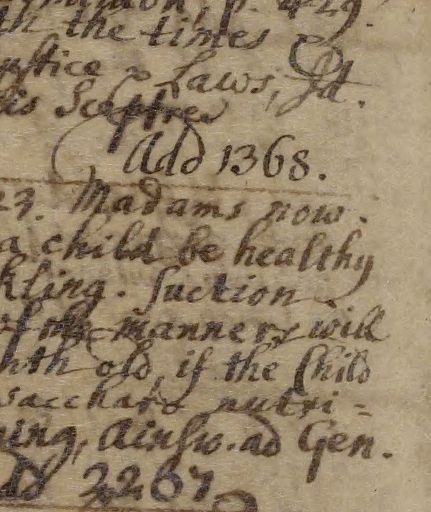 p. 429.
th the times &
stice & Laws, Id.
is Scepter
Add 1368.
23. Madams now.
a child be healthy
kling. suction
of the manners will
nth old, if the Child
saccharo nutri=
ing, Ainsw. ad Gen.
dd 2267